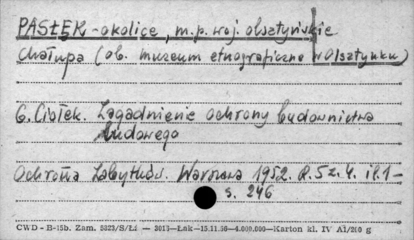 PASŁĘK - okolice, m.p. woj. olsztyńskie
chałupa (ob. muzeum etnograficzne w Olsztynku)
G. Ciołek. Zagadnienie ochrony budownictwa
ludowego
Ochrona Zabytków. Warszawa 1952. R. 5 z. 4. il. 1 -
s. 246
CWD - B-15b. Zam. 5823/S/Łi — 3013—Łak—15.11.56—4.000.000—Karton kl. IV A1/200 g